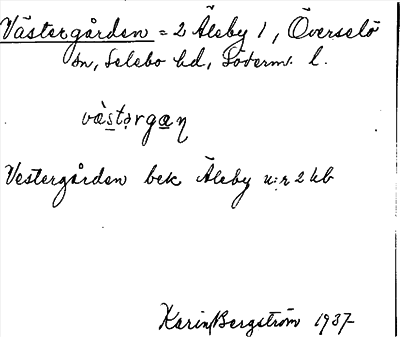 Västergården = 2 Äleby 1, Överselö
sn, Selebo hd, Söderm. l.
væ̀stərgɑn
Vestergården bek Äleby n:r 2 kb
Karin Bergström 1937